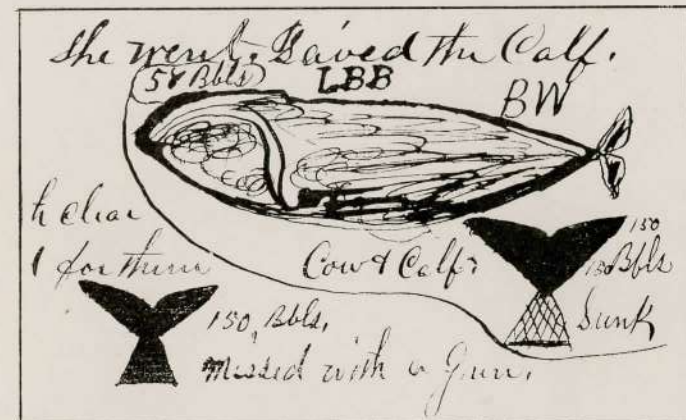 She went. Saved the Calf.
58 Bbls
LBB
BW
h clear
1 for them
Cow & Calf
150
150 Bbls
Sunk
150 Bbls,
Missed with a Gun.